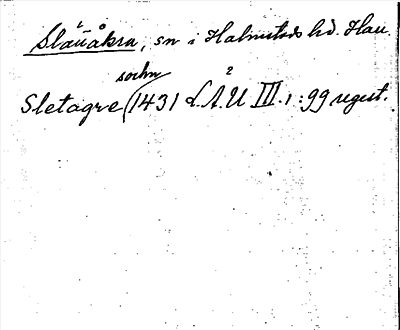 Slättåkra, sn i Halmstads hd. Hall.
sochn
Sletagre (1431 L.A.U² III.1:99 regest.